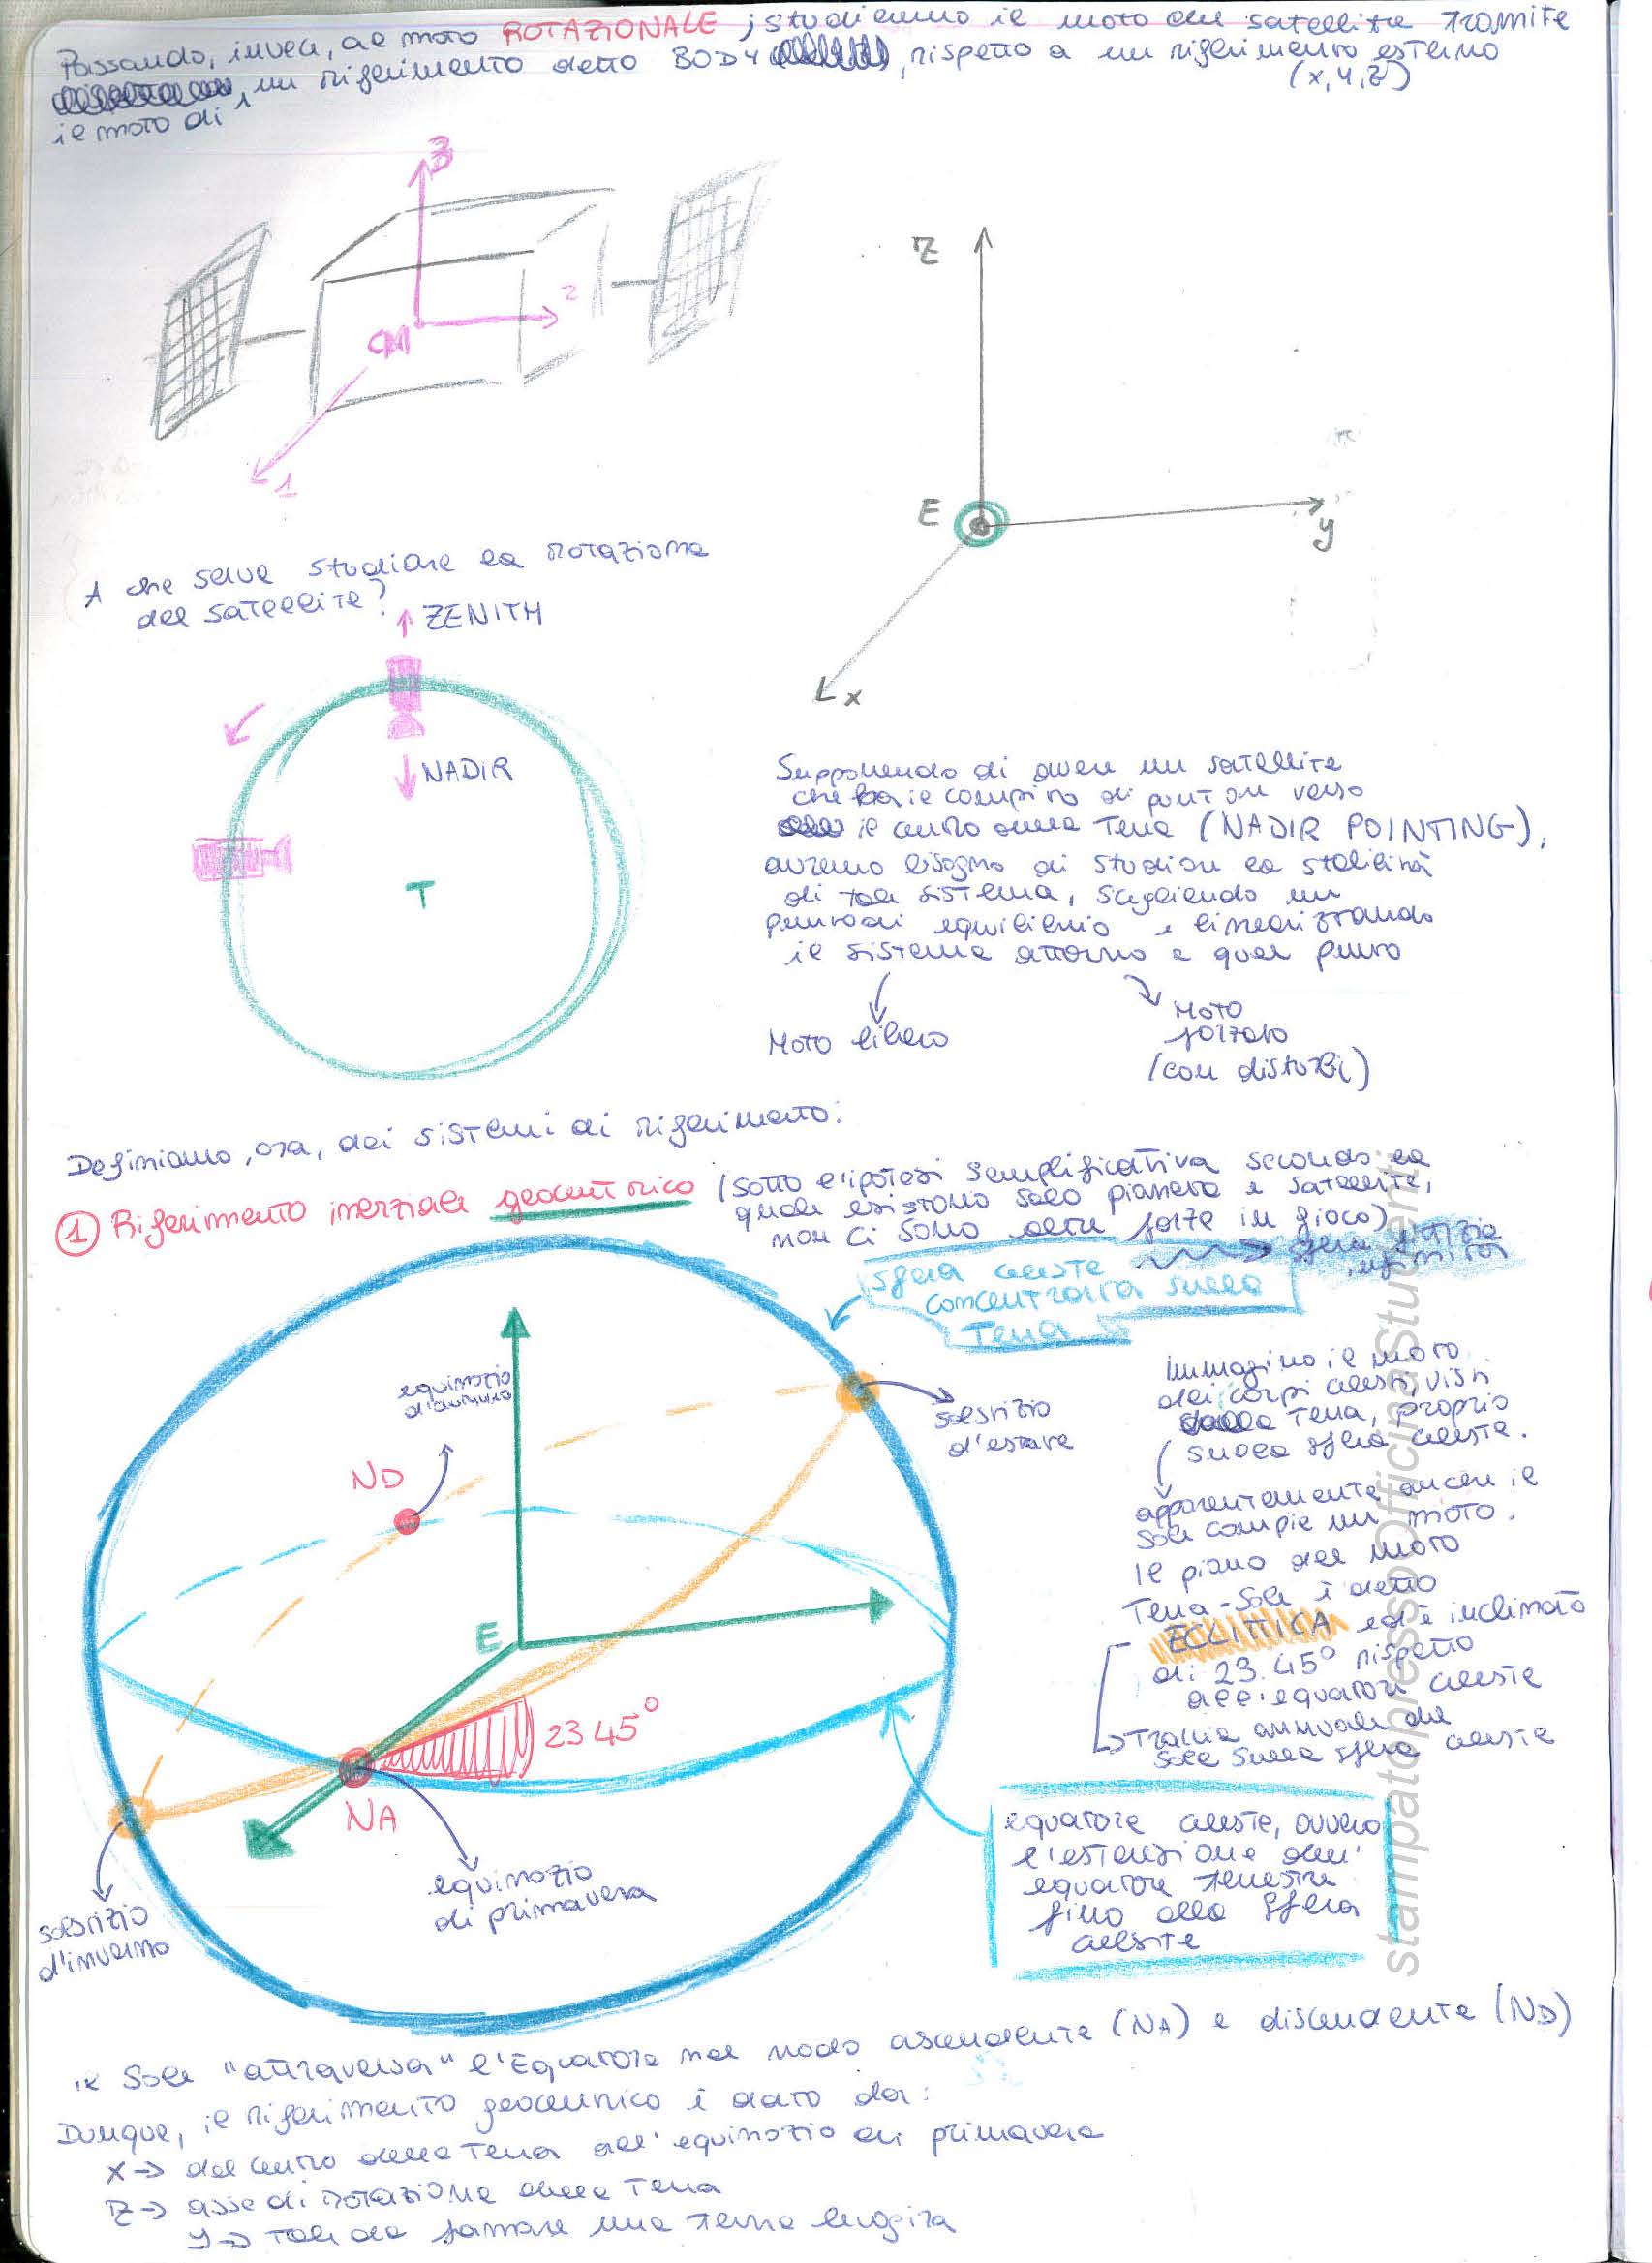 Passando, invece, al moto ROTAZIONALE, studieremo il moto del satellite tramite
il moto di un riferimento detto BODY, rispetto a un riferimento esterno
(x,y,z)
3
2
CM
1
Z
E
y
x
A che serve studiare la rotazione
del satellite?
ZENITH
NADIR
T
Supponendo di avere un satellite
che ha il compito di puntare verso
il centro della Terra (NADIR POINTING),
avremo bisogno di studiare la stabilità
di tale sistema, scegliendo un
punto di equilibrio e linearizzando
il sistema attorno a quel punto
Moto libero
Moto
forzato
(con disturbi)
Definiamo, ora, dei sistemi di riferimento:
1 Riferimento inerziale geocentrico (sotto l'ipotesi semplificativa secondo la
quale esistono solo pianeta e satellite,
non ci sono altre forze in gioco)
sfera fittizia
infinita
sfera celeste
concentrata sulla
Terra
equinozio
d'autunno
ND
solstizio
d'estate
immagino il moto
dei corpi celesti, visti
dalla Terra, proprio
sulla sfera celeste.
apparentemente anche il
Sole compie un moto.
Il piano del moto
Terra-Sole è detto
ECLITTICA ed è inclinato
di 23.45° rispetto
all'equatore celeste
Traccia annuale del
Sole sulla sfera celeste
E
23 45°
NA
equinozio
di primavera
solstizio
d'inverno
equatore celeste, ovvero
l'estensione dell'
equatore terrestre
fino alla sfera
celeste
il Sole "attraversa" l'Equatore nel nodo ascendente (NA) e discendente (ND)
Dunque, il riferimento geocentrico è dato da:
X → dal centro della Terra all'equinozio di primavera
Z → asse di rotazione della Terra
Y → tale da formare una terna levogira
stampatopressoOfficinaStudenti